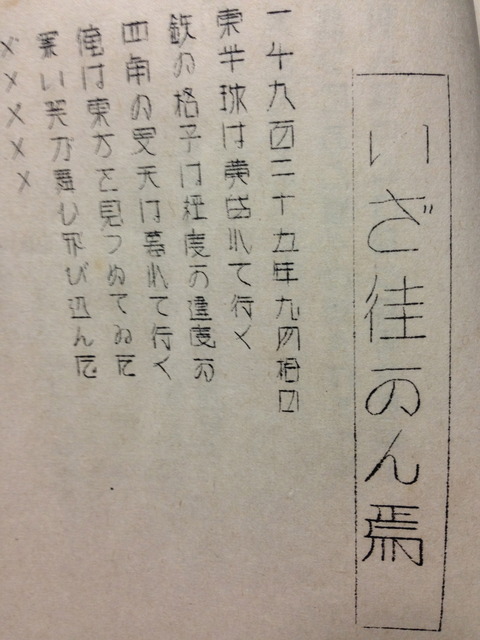 いざ往かん焉
一千九百二十九年九月拾日
東半球は黄昏れて行く
鉄の格子は経度か緯度か
四角の曇天は暮れて行く
俺は東方を見つめてゐた
黒い が舞ひ飛び込んだ
×××××